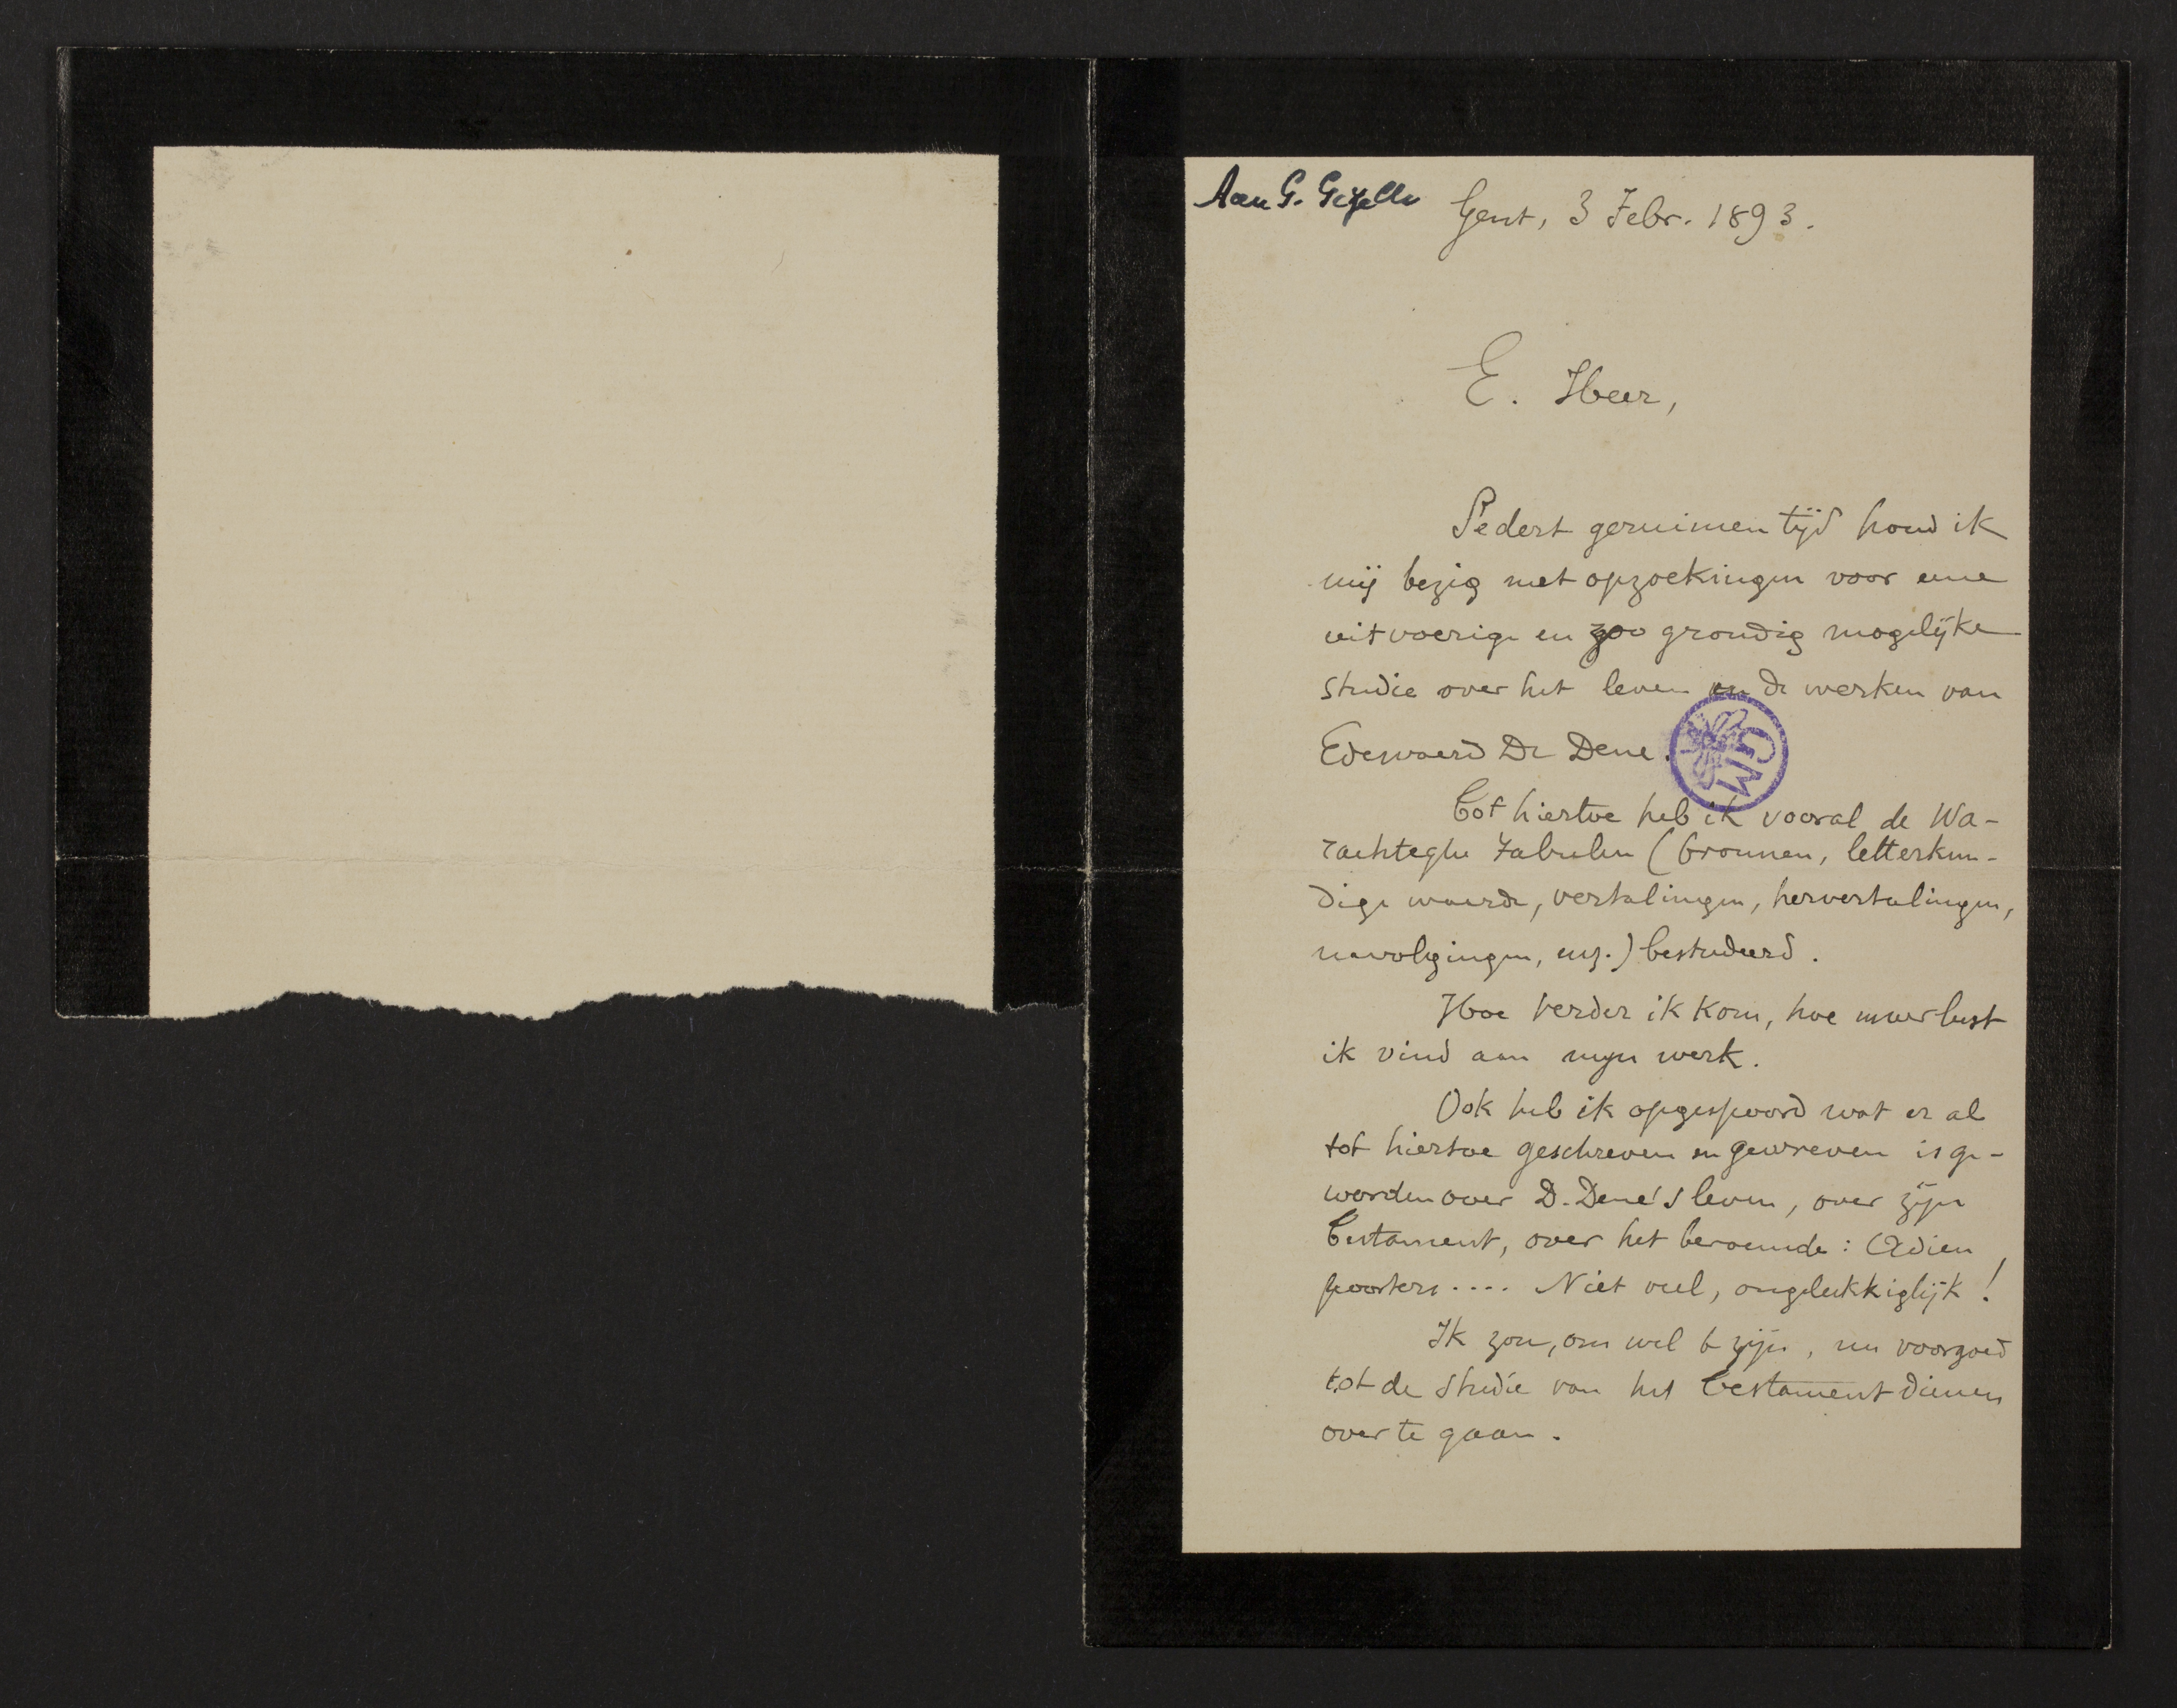 Aan G. Gezelle
Gent, 3 Febr. 1893.
E. Heer,
Sedert geruimen tijd houd ik
mij bezig met opzoekingen voor eene
uitvoerige en zoo grondig mogelijke
studie over het leven en de werken van
Edewaerd De Dene.
GM
Tot hiertoe heb ik vooral de Wa-
rachteghe Fabulen (bronnen, letterkun-
dige waarde, vertalingen, hervertalingen,
navolgingen, enz.) bestudeerd.
Hoe verder ik kom, hoe meer lust
ik vind aan mijn werk.
Ook heb ik opgespoord wat er al
tot hiertoe geschreven en gewreven is ge-
worden over D. Dene's leven, over zijn
Testament, over het beroemde: Adieu
poorters.... Niet veel, ongelukkiglijk!
Ik zou, om wel te zijn, nu voorgoed
tot de studie van het Testament dienen
over te gaan.